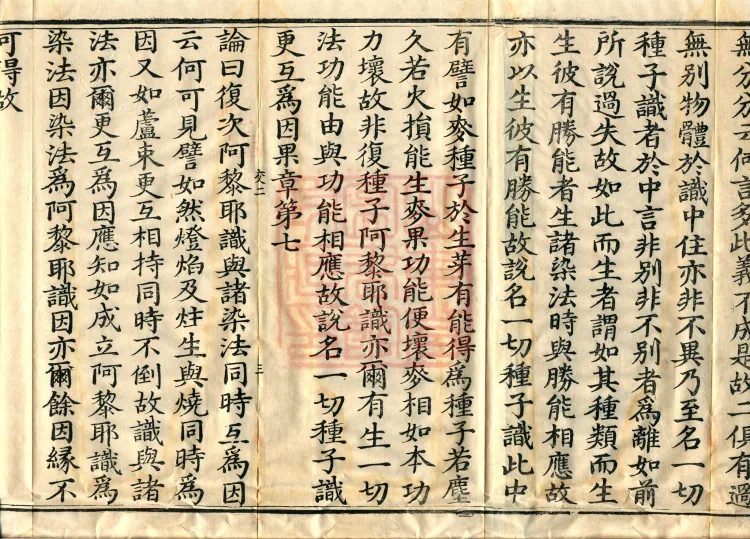 無分分云何言多此義不成是故二俱有過
無別物體於識中住亦非不異乃至名一切
種子識者於中言非別非不別者爲離如前
所說過失故如此而生者謂如其種類而生
生彼有勝能者生諸染法時與勝能相應故
亦以生彼有勝能故說名一切種子識此中
有譬如麥種子於生芽有能得爲種子若塵
久若火損能生麥果功能便壞麥相如本功
力壞故非復種子阿黎耶識亦爾有生一切
法功能由與功能相應故說名一切種子識
更互爲因果章第七
交二
三
論曰復次阿黎耶識與諸染法同時互爲因
云何可見譬如然燈焰及炷生與燒同時爲
因又如蘆束更互相持同時不倒故識與諸
法亦爾更互爲因應知如成立阿黎耶識爲
染法因染法爲阿黎耶識因亦爾餘因緣不
可得故